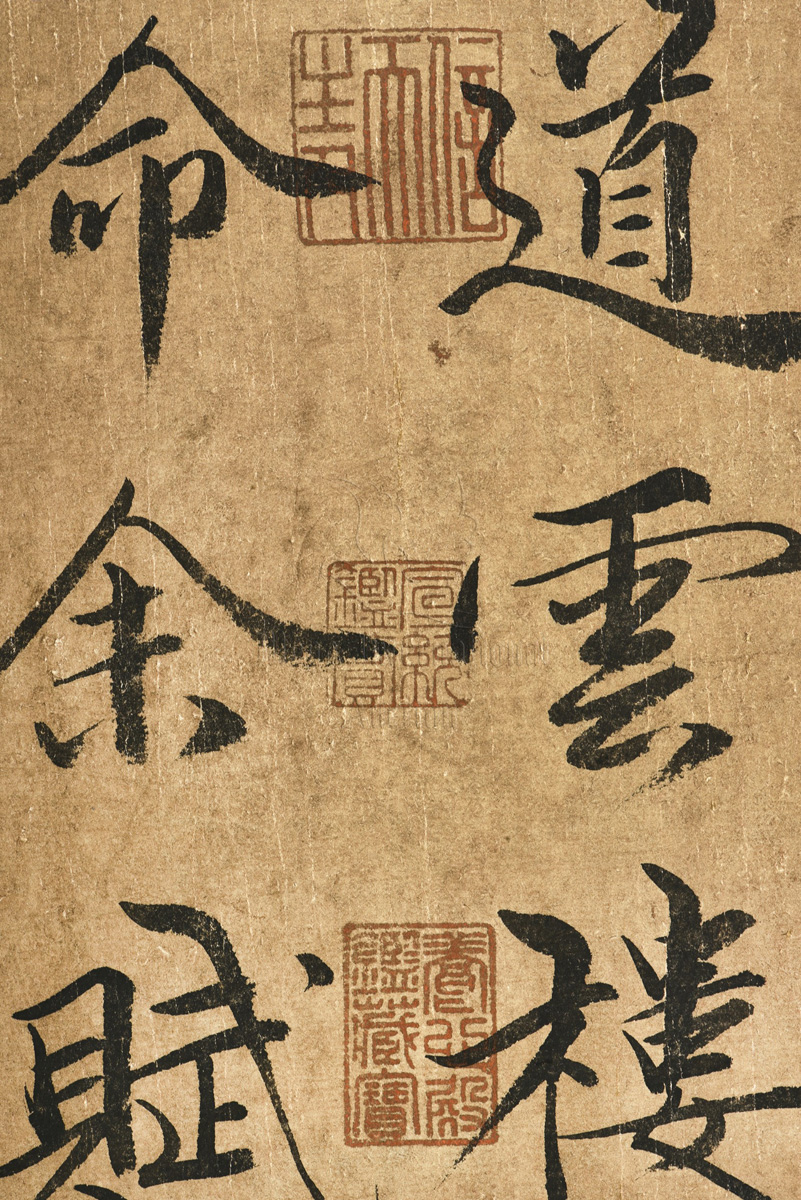 道雲樓
信天主人
宣統鑑賞
養心殿鑑藏寶
命余賦